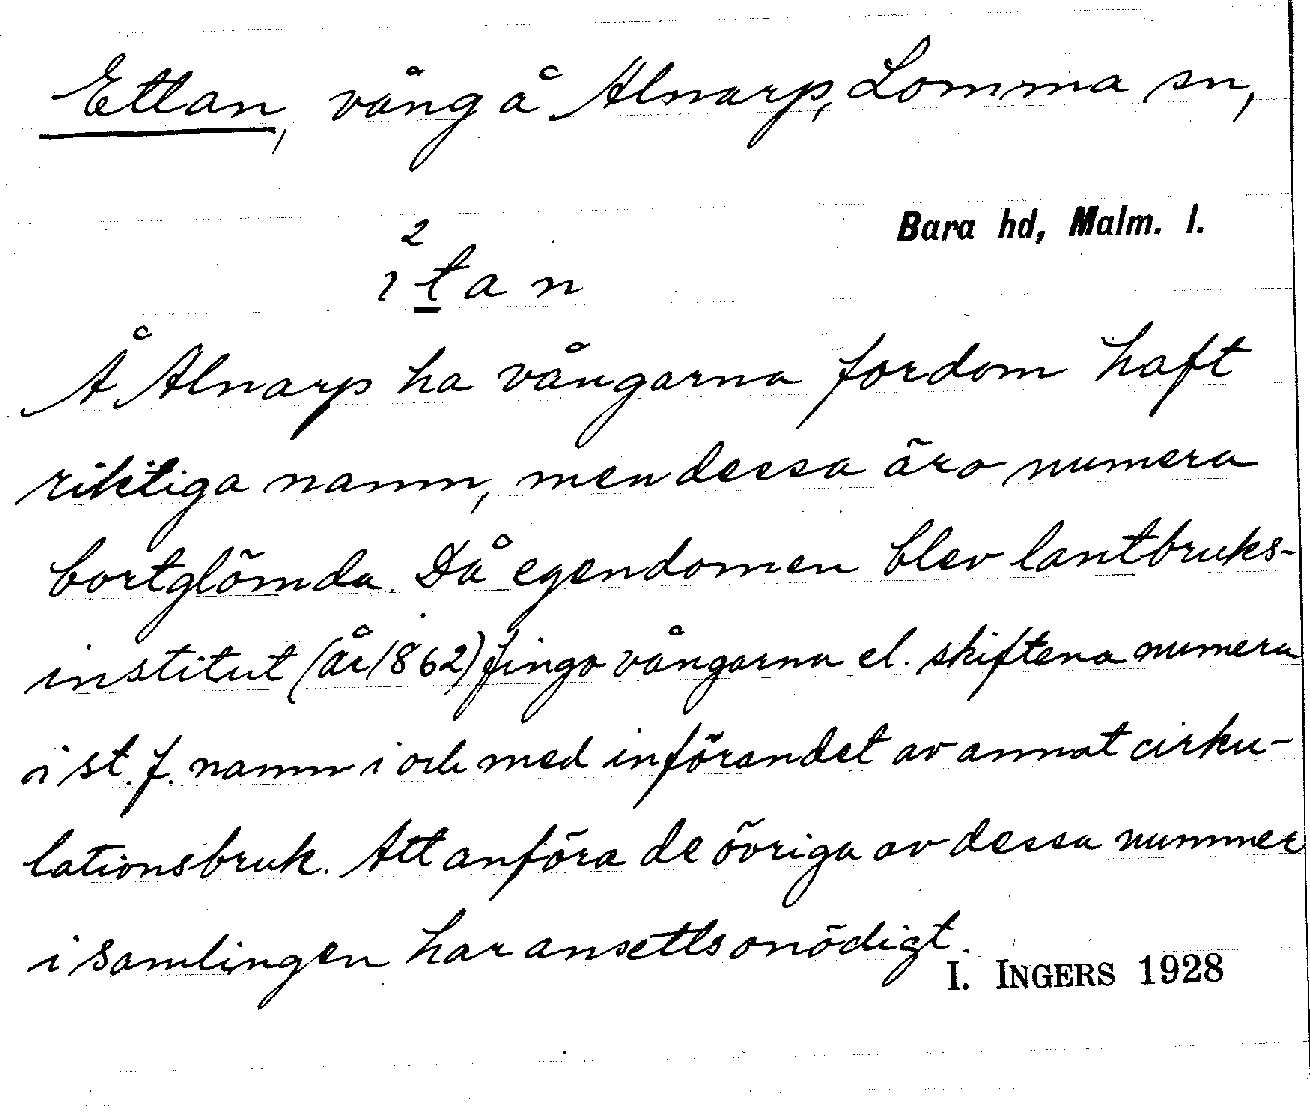 Ettan, vång å Alnarp, Lomma sn,
Bara hd, Malm. l.
2
ıtan
Å Alnarp ha vångarna fordom haft
riktiga namn, men dessa äro numera
bortglömda. Då egendomen blev lantbruks-
institut (år 1862) fingo vångarna el. skiftena numera
i st. f. namn i och med införandet av annat cirku-
lationsbruk. Att anföra de övriga av dessa nummer
i samlingen har ansetts onödigt.
I. INGERS 1928